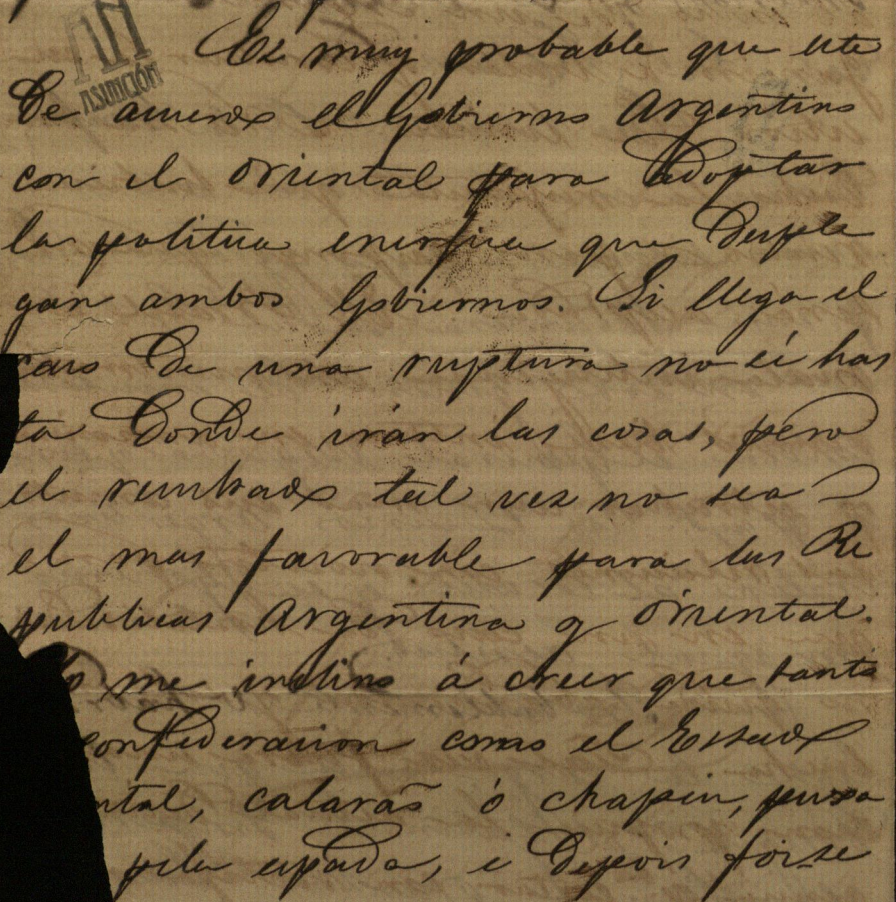 ASUNCIÓN
Es muy probable que este
de acuerdo el Gobierno Argentino
con el Oriental para adoptar
la politica energica que desple
gan ambos Gobiernos. Si llega el
caso de una ruptura no sé has
ta donde irán las cosas, pero
el resultado tal vez no sea
el mas favorable para las Re
publicas Argentina y Oriental.
me inclino á creer que tanto
confederacion como el Estado
ntal, calaraõ o chapin,
pela espada, e depois foi-se